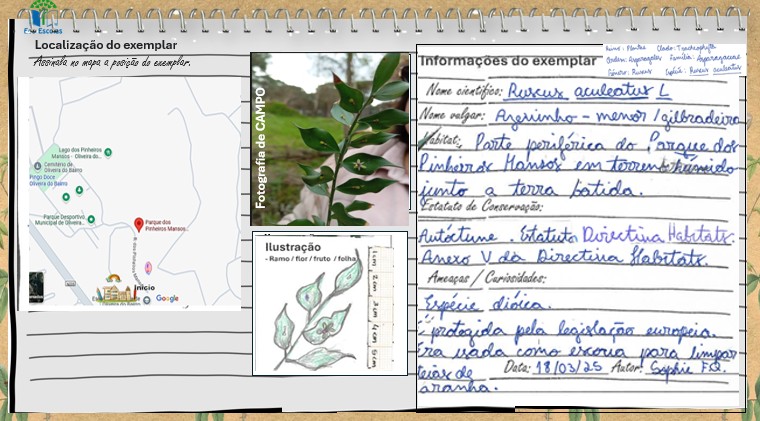 Eco Escolas
Localização do exemplar
Assinala no mapa a posição do exemplar.
Lago dos Pinheiros
Mansos - Oliveira do...
Cemitério de
Oliveira do Bairro
Pingo Doce
Oliveira do Bairro
Parque Desportivo
Municipal de Oliveira...
Parque dos
Pinheiros Mansos...
R. dos Pinheiros Mansos
Início
Google
Fotografia de CAMPO
Ilustração
- Ramo / flor / fruto / folha
1cm 2cm 3cm 4cm 5cm
Reino: Plantae Clado: Tracheophyta
Ordem: Asparagales Família: Asparagaceae
Género: Ruscus Espécie: Ruscus aculeatus
Informações do exemplar
Nome científico: Ruscus aculeatus L
Nome vulgar: Azevinho - menor / gilbardeira
Habitat: Parte periférica do Parque dos
Pinheiros Mansos em terreno húmido
junto a terra batida.
Estatuto de Conservação:
Autóctune. Estatuto Directina Habitats.
Anexo V da Directina Habitats.
Ameaças / Curiosidades:
Espécie dióica.
É protegida pela legislação europeia.
Era usada como escova para limpar
teias de
aranha.
Data: 18/03/25 Autor: Sophie F.Q.